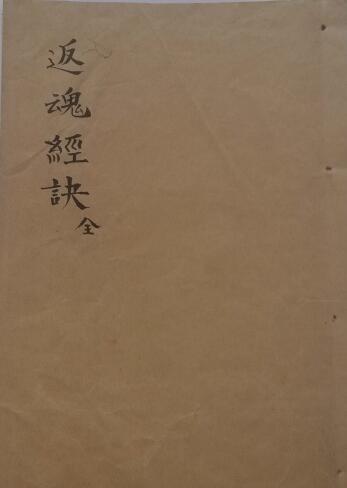 返魂經訣全